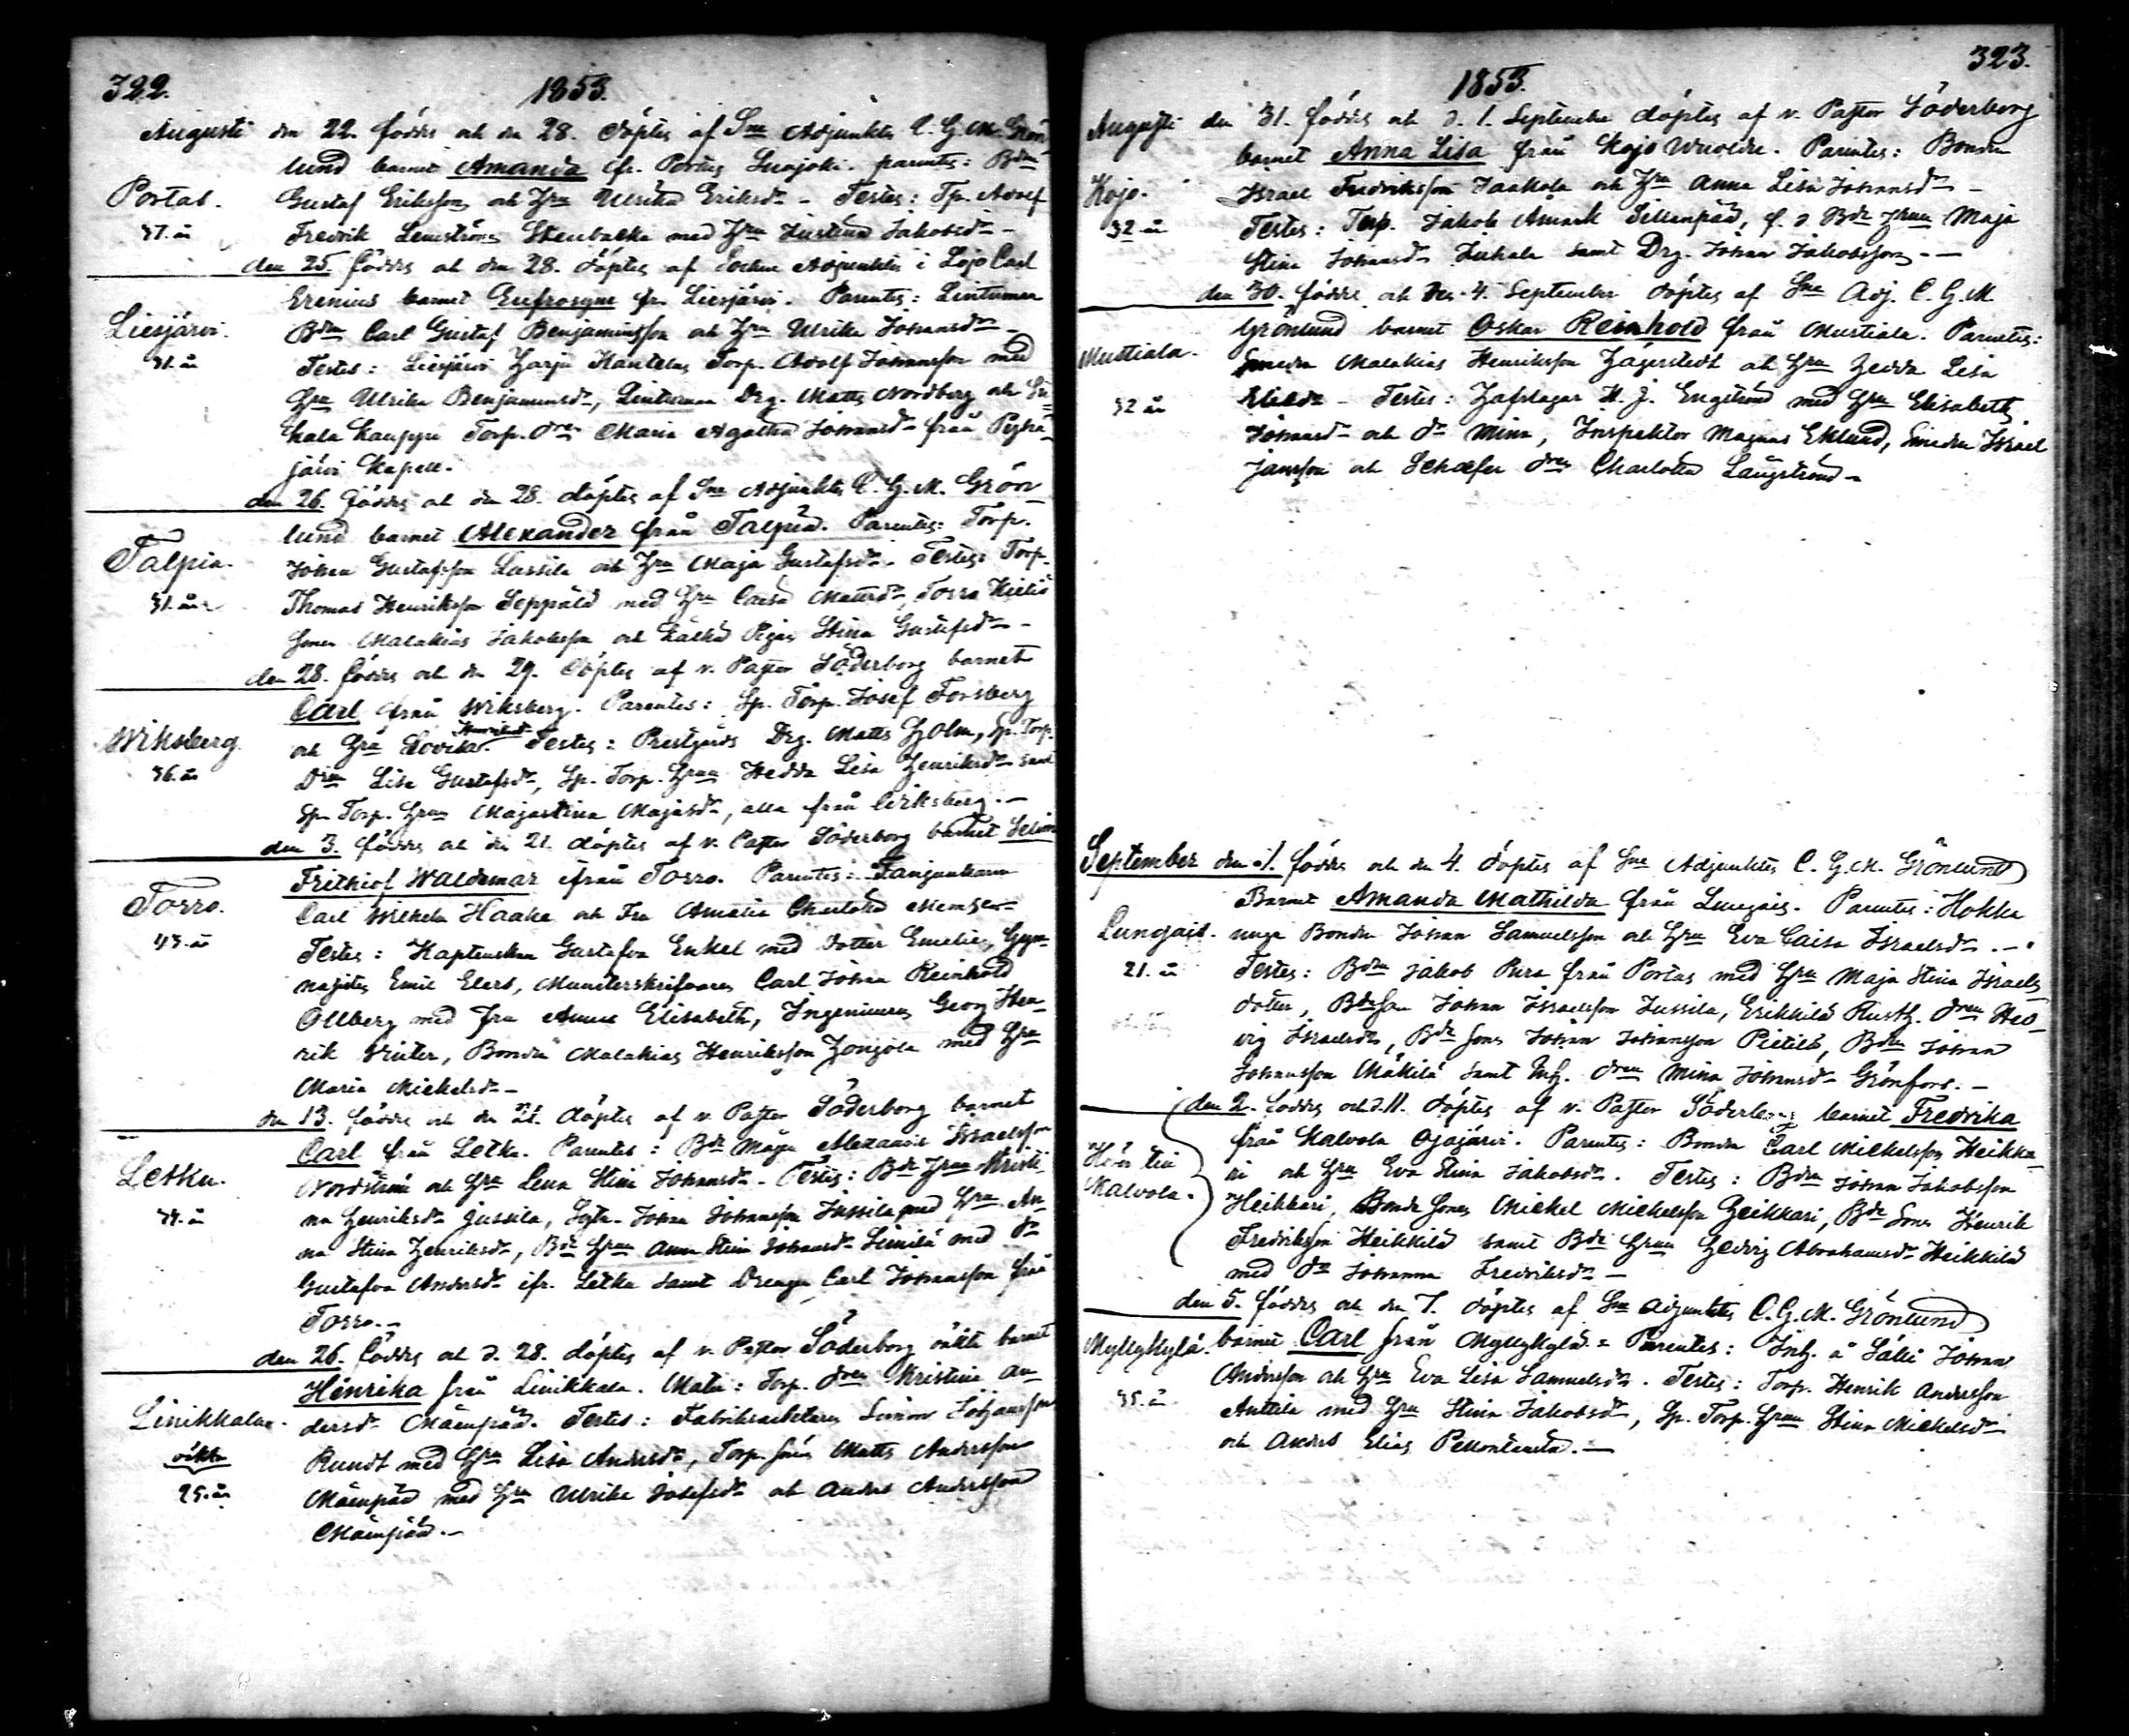 322.
1853.
Augusti den 22. föddes och den 28. döptes af Sne Adjunkten C. G. M. Grön-
lund barnet Amanda fr. Portas Suojoki. parentes: Bdn
Portas. Gustaf Eriksson och Hru Ulrika Eriksdr - Testes: Tp. Adolf
37. år Fredrik Lemström Stenbacka med Hru Justina Jakobsdr -
den 25. föddes och den 28. döptes af Sockne Adjunkten i Lojo Carl
Erenius barnet Eufrosyne fr. Liesjärvi. Parentes: Lintumaa
Liesjärvi. Bdn Carl Gustaf Benjaminsson och Hru Ulrika Johansdr -
31. år Testes: Liesjärvi Harju Torp. Adolf Johansson med
Hru Ulrika Benjaminsdr, Lintumaa Drg. Matts Nordberg och
kala Kauppi Torp. dren Maria Agatha Johansdr från Pyhä-
järvi Kapell.
den 26. föddes och den 28. döptes af Sne Adjunkten C. G. M. Grön-
lund barnet Alexander från Talpia. Parentes: Torp.
Talpia. Johan Gustafsson Lassila och Hru Maja Gustafsdr. Testes: Torp.
31. år Thomas Henriksson Seppälä med Hru Caisa Mattsdr, Torro
Sonen Malakias Jakobsson och Pigan Stina Gustafsdr -
den 28. föddes och den 29. döptes af v. Pastor Söderborg barnet
Carl från Wiksberg. Parentes: Sp. Torp. Josef Forsberg
Wiksberg. och Hru Lovisa Henriksdr Testes: Prestgårds Drg. Matts Holm, Sp. Torp.
36. år Dren Lisa Gustafsdr, Sp. Torp. Hrun Hedda Lisa Henriksdr samt
Sp. Torp. Hrun Majastina Majasdr, alla från Wiksberg. -
den 3. föddes och den 21. döptes af v. Pastor Söderborg barnet Selim
Frithiof Waldemar ifrån Torro. Parentes: Fanjunkaren
Torro. Carl Wilhelm Haake och Fru Amalia Charlotta
43. år Testes: Kaptenskan Gustafva Enkel med dotter Emelie, Gym-
nasisten Emil Elers, Munsterskrifvaren Carl Johan Reinhold
Ollberg med fru Anna Elisabeth, Ingenieuren Georg Hen-
rik Winter, Bonden Malakias Henriksson Honjola med Hru
Maria Mickelsdr -
den 13. föddes och den 21. döptes af v. Pastor Söderborg barnet
Carl från Letku. Parentes: Bde Mågen Alexander Israelsson
Letku. Nordström och Hru Lena Stina Johansdr. Testes: Bde Hrun Kristi-
34. år na Henriksdr Jussila, Johan Johansson Jussila med Hru An-
na Stina Henriksdr, Bde Hrun Anna Stina Johansdr Simila med dr
Gustafva Andersdr ifr. Letku samt Drengen Carl Johansson från
Torro. -
den 26. föddes och d. 28. döptes af v. Pastor Söderborg oäkta barnet
Henrika från Linikkala. Mater: Torp. dren Kristina An-
Linikkala. dersdr Mäenpää. Testes: Fabriksarbetaren Simon Johansson
oäkta Rundt med Hru Lisa Andersdr, Torp. son Matts Andersson
25. år Mäenpää med Hru Ulrika Josefsdr och Anders Andersson
Mäenpää. -
323.
1853.
Augusti den 31. föddes och d. 1. September döptes af v. Pastor Söderborg
barnet Anna Lisa från Kojo. Parentes: Bonden
Kojo. Israel Fredriksson Jaakola och Hru Anna Lisa Johansdr -
32 år Testes: Torp. Jakob Amark Sillanpää, f. d. Bde Hrun Maja
Stina Johansdr samt Drg. Johan Jakobsson. -
den 30. föddes och den 4. September döptes af Sne Adj. C. G. M.
Grönlund barnet Oskar Reinhold från Mustiala. Parentes:
Mustiala. Smeden Malakias Henriksson Hägerstedt och Hru Hedda Lisa
32 år - Testes: H. J. Engstrand med Hru Elisabeth
Johansdr och dr Mina, Inspektor Magnus Eklund, Smeden Israel
Jansson och Schæfer dren Charlotta Långstrand -
September den 1. föddes och den 4. döptes af Sne Adjunkten C. G. M. Grönlund
Barnet Amanda Mathilda från Lungais. Parentes: Hokka
Lungais. unge Bonden Johan Samuelsson och Hru Eva Caisa Israelsdr. -
21. år Testes: Bdn Jakob Pura från Portas med Hru Maja Stina Israels
dotter, Bde Son Johan Israelsson Jussila, Erikkilä Rusth. dren Hed-
vig Israelsdr, Bde Sonen Johan Johansson Pietilä, Bdn Johan
Johansson Mäkilä samt Inh. dren Mina Johansdr Grönfors. -
den 2. föddes och d. 11. döptes af v. Pastor Söderborg barnet Fredrika
från Kalvola Ojajärvi. Parentes: Bonden Carl Mickelsson Heikka-
Kalvola. ri och Hru Eva Stina Jakobsdr. Testes: Bdn Johan Jakobsson
Heikkari, Bonde Sonen Mickel Mickelsson Heikkari, Bde Sonen Henrik
Fredriksson Heikkilä samt Bde Hrun Hedvig Abrahamsdr Heikkilä
med dr Johanna Fredriksdr -
den 5. föddes och den 7. döptes af Sne Adjunkten C. G. M. Grönlund
Myllykylä. barnet Carl från Myllykylä. Parentes: Inh. å Sälli Johan
Andersson och Hru Eva Lisa Samuelsdr. Testes: Torp. Henrik Andersson
35. år Anttila med Hru Stina Jakobsdr, Sp. Torp. Hrun Stina Mickelsdr
och Anders Elias. -